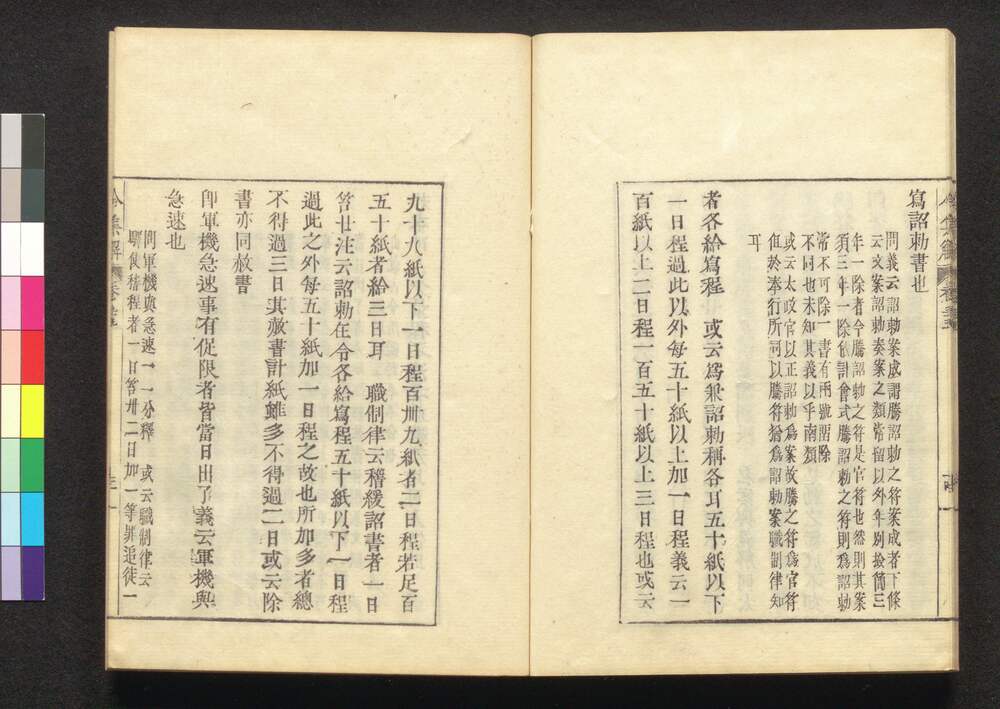 寫詔勅書也
問義云詔勅案成謂謄詔勅之符案成者下條
云文案詔勅奏案之類常留以外年別撿簡三
年一除者今謄詔勅之符是官符也然則其案
須三年一除依計會式謄詔勅之符則爲詔勅
常不可除一書有兩號留除
不同也未知其義以乎南類
或云太政官以正詔勅爲案故謄之符爲官符
但於奉行所司以謄符猶爲詔勅案職制律知
耳
者各給寫程 或云爲兼詔勅稱各耳五十紙以下
一日程過此以外每五十紙以上加一日程義云一
百紙以上二日程一百五十紙以上三日程也或云
九十八紙以下一日程百卅九紙者二日程若足百
五十紙者給三日耳 職制律云稽緩詔書者一日
笞廿注云詔勅在令各給寫程五十紙以下一日程
過此之外每五十紙加一日程之故也所加多者總
不得過三日其赦書計紙雖多不得過二日或云除
書亦同赦書
卽軍機急速事有促限者皆當日出了義云軍機與
急速也
問軍機與急速一一分釋 或云職制律云
官文書稽程者一日笞卅二日加一等罪追徒一
令集解 卷